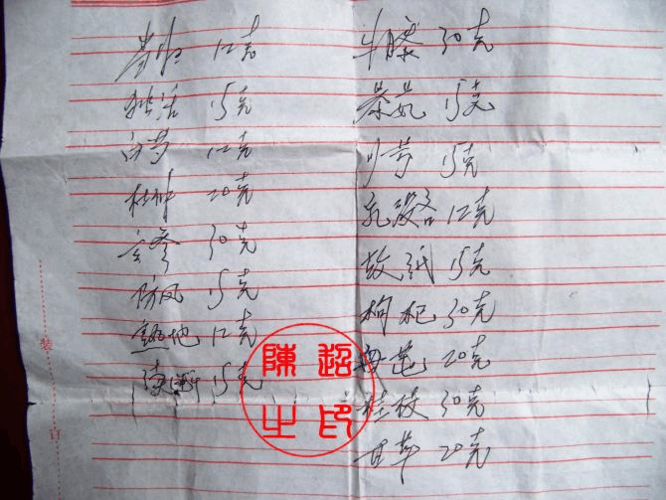 当归 12克
独活 15克
白芍 12克
杜仲 20克
玄参 30克
防风 15克
熟地 12克
续断 15克
牛膝 30克
秦艽 15克
川芎 15克
乳没各 12克
故纸 15克
枸杞 30克
20克
桂枝 30克
甘草 20克
陳超之印
装
订